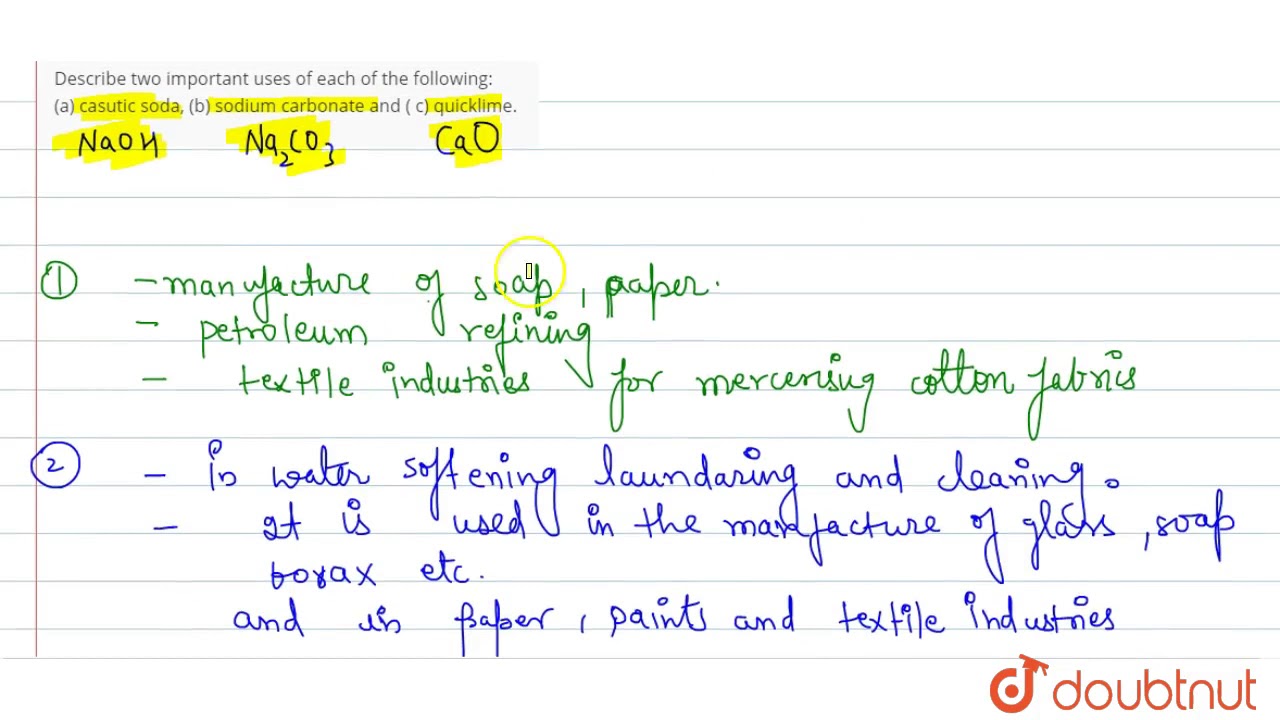 Describe two important uses of each of the following:
(a) casutic soda, (b) sodium carbonate and ( c) quicklime.
NaOH Na2CO3 CaO
① - manufacture of soap, paper.
- petroleum refining
- textile industries for mercerising cotton fabrics
② - in water softening laundaring and cleaning.
- It is used in the manfacture of glass, soap
borax etc.
and in paper, paints and textile industries
doubtnut